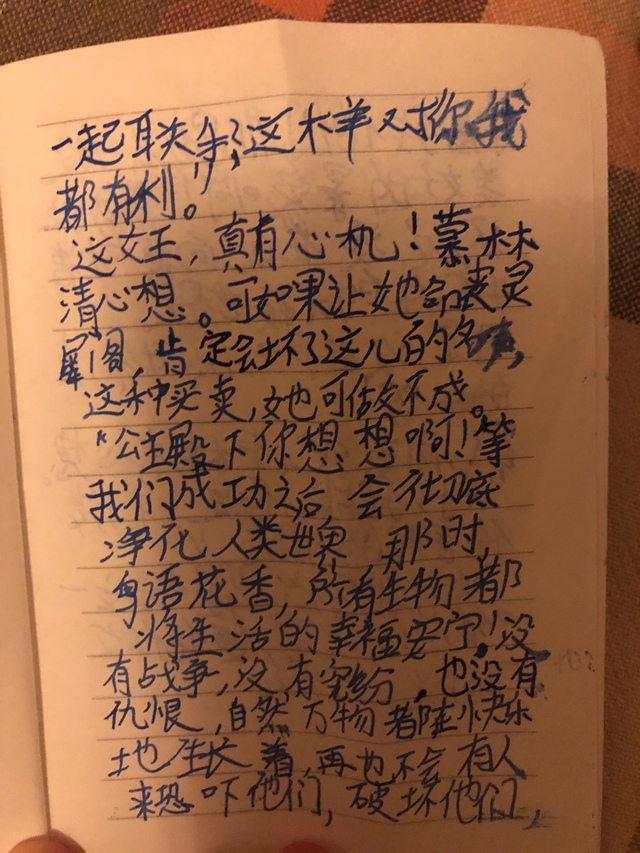 一起联手,这样对你我
都有利。
这女王,真有心机!慕林
清心想。可如果让她
,肯定会坏了这儿的名声,
这种买卖,她可做不成。
"公主殿下你想想啊!等
我们成功之后,会彻底
净化人类世界,那时,
鸟语花香,所有生物都
将生活的幸福安宁!没
有战争,没有纷,也没有
仇恨,自然万物都在快乐
地生长着,再也不会有人
来恐吓他们,破坏他们,